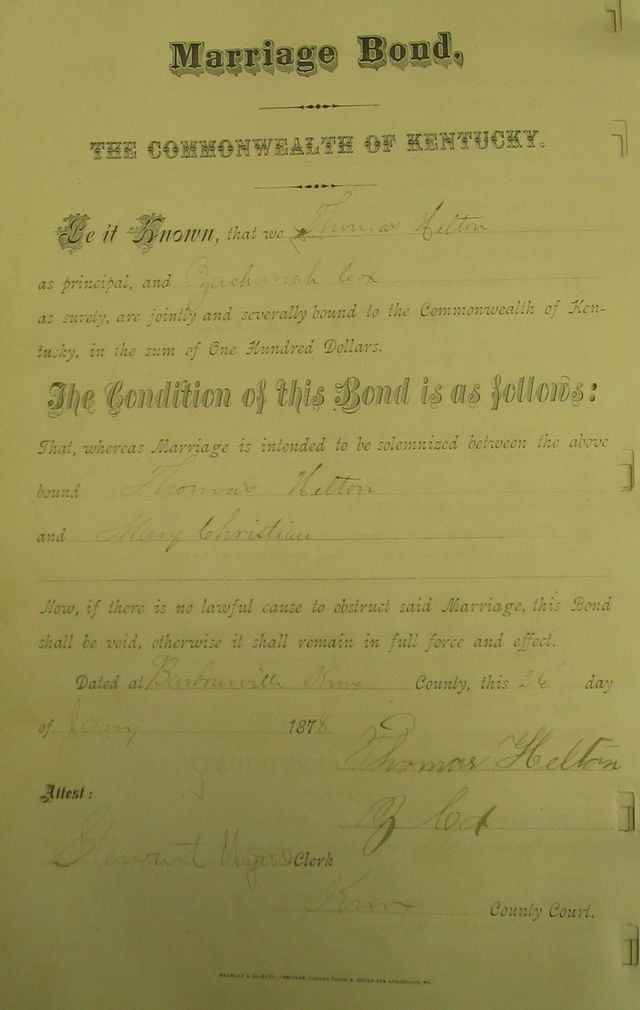 Marriage Bond.
THE COMMONWEALTH OF KENTUCKY.
Be it Known, that we Thomas Helton
as principal, and Zachariah Cox
as surety, are jointly and severally bound to the Commonwealth of Ken-
tucky, in the sum of One Hundred Dollars.
The Condition of this Bond is as follows:
That, whereas Marriage is intended to be solemnized between the above
bound Thomas Helton
and Mary Christian
Now, if there is no lawful cause to obstruct said Marriage, this Bond
shall be void, otherwise it shall remain in full force and effect.
Dated at Barbourville Knox County, this 26 day
of Jany 1878
Thomas Helton
Attest:
Z Cox
Stewart Clerk
Knox County Court.